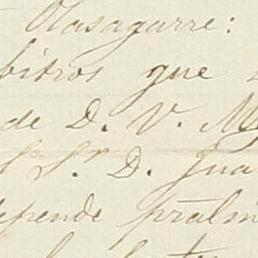 Olasagarre:
bitros que
de D. V. M
S Sr D. Jua
depende pralm